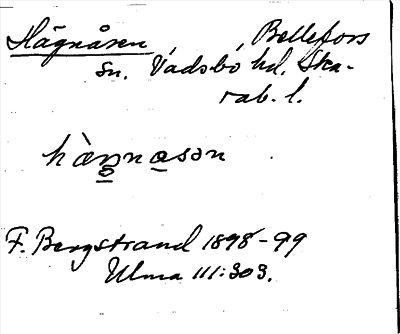 Hägnåsen, Bellefors
sn. Vadsbo hd. Ska-
rab. l.
hæ̀n̥nα̲sən
F. Bergstrand 1898-99
Ulma 111:303.